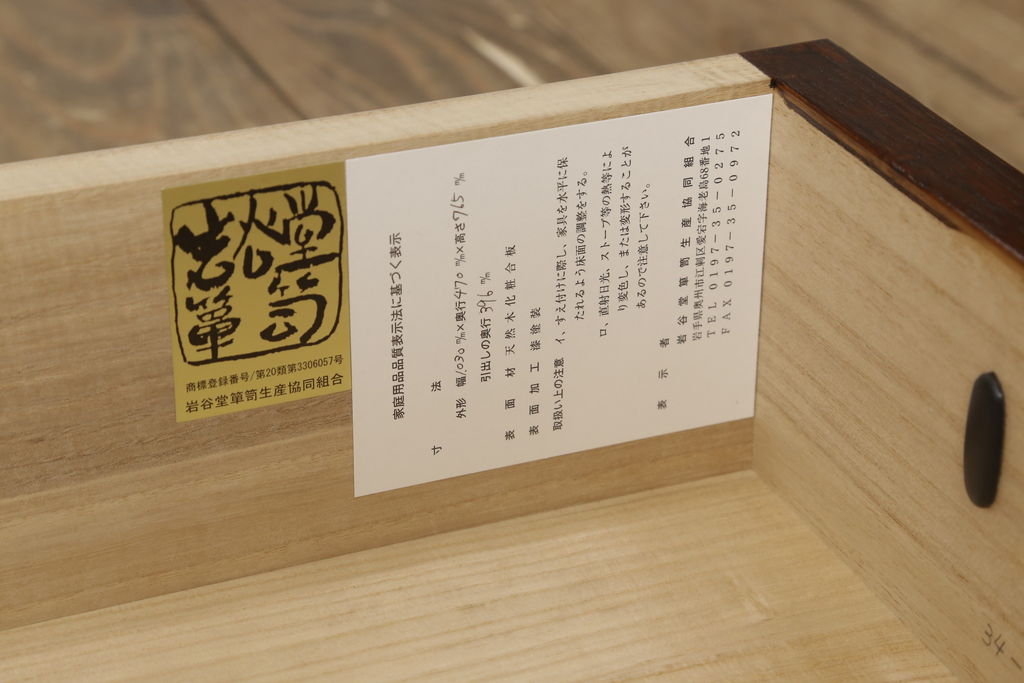 岩谷堂箪笥
商標登録番号/第20類第3306057号
岩谷堂箪笥生産協同組合
家庭用品品質表示法に基づく表示
寸法
外形 幅1.030㎜×奥行470㎜×高さ765㎜
引出しの奥行396㎜
表面材 天然木化粧合板
表面加工 漆塗装
取扱い上の注意 イ、すえ付けに際し、家具を水平に保
たれるよう床面の調整をする。
ロ、直射日光、ストーブ等の熱等によ
り変色し、または変形することが
あるので注意して下さい。
表示者
岩谷堂箪笥生産協同組合
岩手県奥州市江刺区愛宕字海老島68番地1
TEL 0197-35-0275
FAX 0197-35-0972
34-